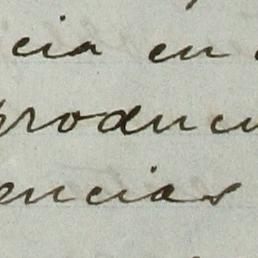 cia en
produci
encias